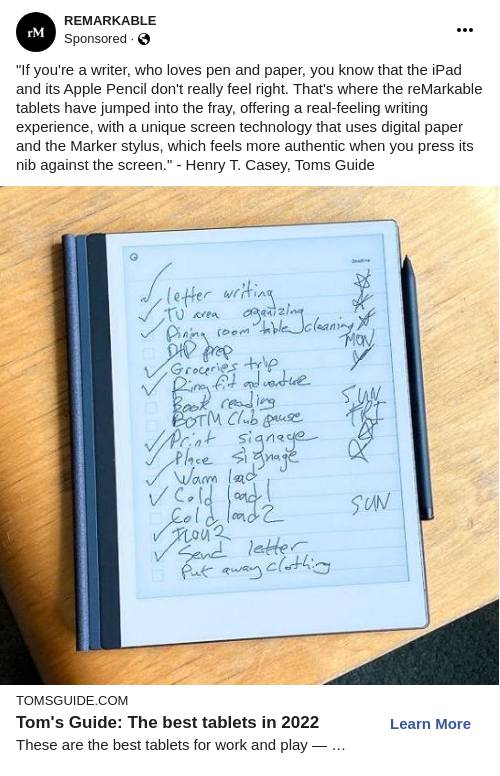 REMARKABLE
Sponsored ·
rM
"If you're a writer, who loves pen and paper, you know that the iPad
and its Apple Pencil don't really feel right. That's where the reMarkable
tablets have jumped into the fray, offering a real-feeling writing
experience, with a unique screen technology that uses digital paper
and the Marker stylus, which feels more authentic when you press its
nib against the screen." - Henry T. Casey, Toms Guide
letter writing
TV area organizing
Dining room table cleaning
DND prep MON
Groceries trip
Ring fit adventure
Book reading SUN
BOTM Club pause FRI
Print signage
Place signage
Warm load
Cold load 1
Cold load 2 SUN
Send letter
Put away clothing
TOMSGUIDE.COM
Tom's Guide: The best tablets in 2022
Learn More
These are the best tablets for work and play — …